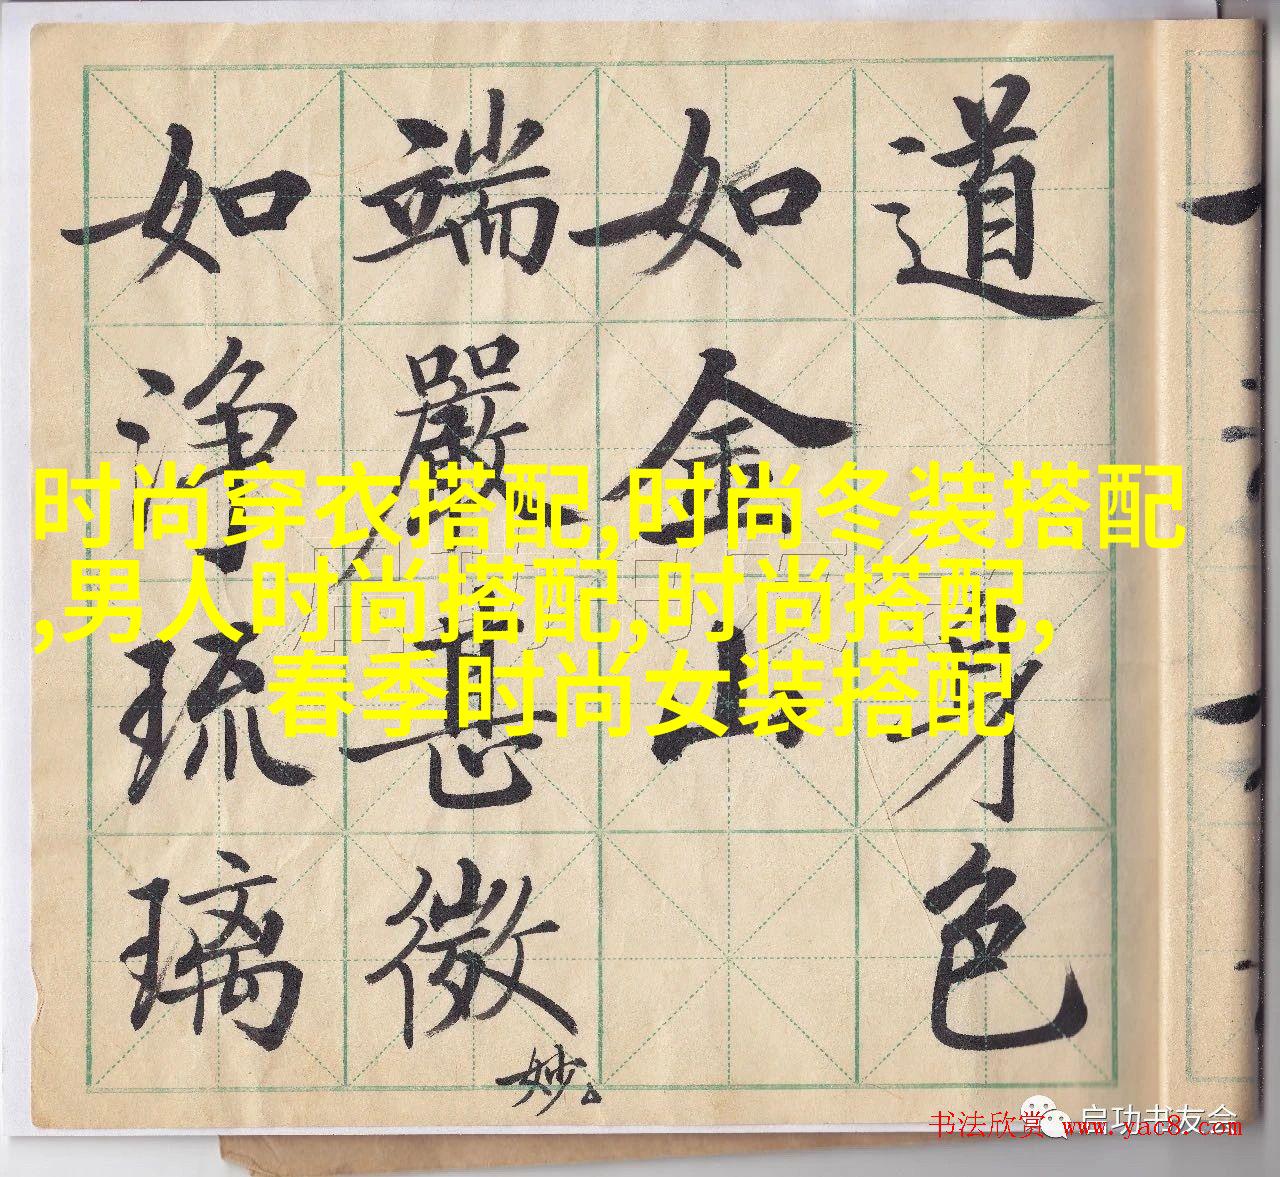 道身色
如金山
端嚴甚微
妙
如淨琉璃
时尚穿衣搭配,时尚冬装搭配
,男人时尚搭配,时尚搭配,
春季时尚女装搭配
启功书友会
书法欣赏 www.yac8.com